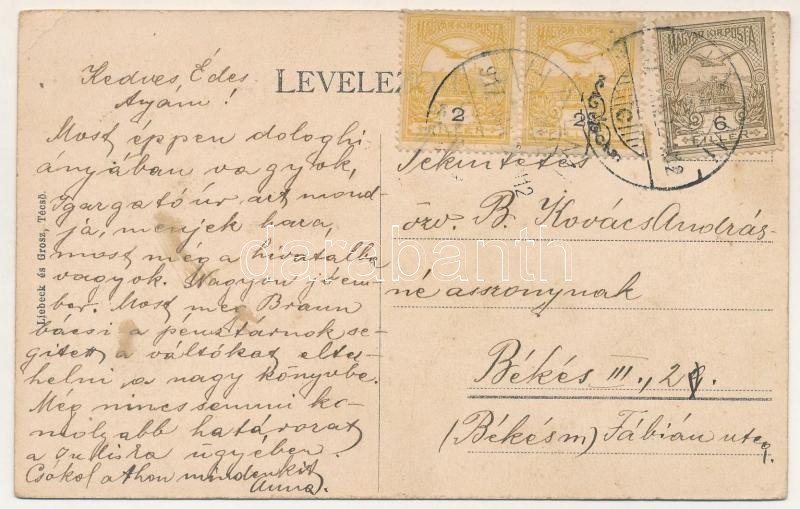 Kedves Édes
Anyám!
Most éppen dologhi
ányjában vagyok,
Igazgató úr azt mond-
ja, menjek haza,
most még a hivatalba
vagyok. Nagyon jó em-
ber. Most meg Braun
bácsi a pénztárnok se-
gitett a váltókat elte-
helni a nagy könyvbe.
Még nincs semmi ko-
molyabb határozat
a ügyében.
Csókol otthon mindenkit
Anna.
Liebeck és Grosz, Técső.
LEVELEZ
MAGYAR KIR. POSTA
2
FILLER
MAGYAR KIR. POSTA
2
FILLER
MAGYAR KIR. POSTA
6
FILLER
Tekintetes
özv. B. Kovács András-
né asszonynak
Békés III., 29.
(Békésm) Fábián utca
darabanth